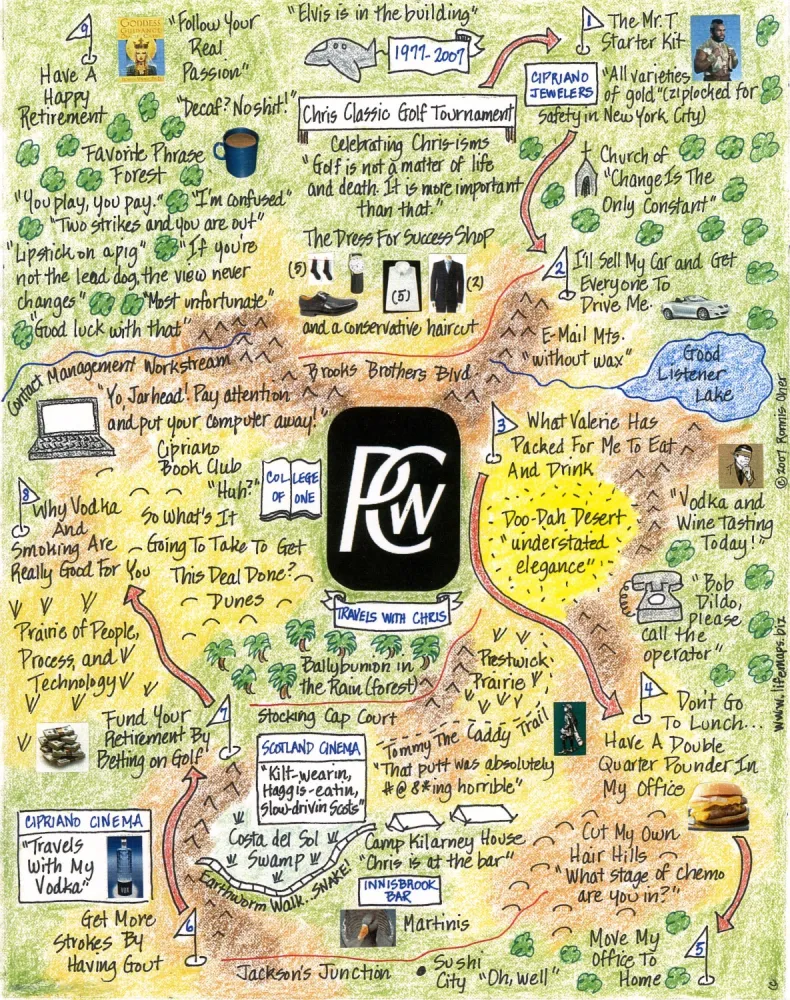 "Elvis is in the building"
1977-2007
Chris Classic Golf Tournament
Celebrating Chris-isms
"Golf is not a matter of life
and death. It is more important
than that."
9
Have A
Happy
Retirement
GODDESS
GUIDANCE
"Follow Your
Real
Passion"
"Decaf? No shit!"
Favorite Phrase
Forest
"You play, you pay."
"I'm confused"
"Two strikes and you are out"
"Lipstick on a pig"
"If you're
not the lead dog, the view never
changes"
"Most unfortunate"
"Good luck with that"
1
The Mr. T
Starter Kit
CIPRIANO
JEWELERS
"All varieties
of gold" (ziplocked for
safety in New York City)
Church of
"Change Is The
Only Constant"
The Dress For Success Shop
(5)
(5)
(2)
and a conservative haircut
Brooks Brothers Blvd.
2
I'll Sell My Car and Get
Everyone To
Drive Me.
E-Mail Mts.
"without wax"
Good
Listener
Lake
Contact Management Workstream
"Yo, Jarhead! Pay attention
and put your computer away!"
Cipriano
Book Club
"Huh?"
COLLEGE
OF ONE
PCW
TRAVELS WITH CHRIS
3
What Valerie Has
Packed For Me To Eat
And Drink
"Vodka and
Wine Tasting
Today!"
Doo-Dah Desert
"understated
elegance"
"Bob
Dildo,
please
call the
operator"
© 2007 Ronnis Oher
www.lifemaps.biz
8
Why Vodka
And
Smoking Are
Really Good For You
So What's It
Going To Take To Get
This Deal Done?
Dunes
Prairie of People,
Process, and
Technology
Ballybunion in
the Rain (forest)
Prestwick
Prairie
Stocking Cap Court
Tommy The Caddy Trail
"That putt was absolutely
#@&*ing horrible"
4
Don't Go
To Lunch...
Have A Double
Quarter Pounder In
My Office
7
Fund Your
Retirement By
Betting on Golf
SCOTLAND CINEMA
"Kilt-wearin,
Haggis-eatin,
Slow-drivin Scots"
CIPRIANO CINEMA
"Travels
With My
Vodka"
Costa del Sol
Swamp
Earthworm Walk...SNAKE!
Camp Kilarney House
"Chris is at the bar"
INNISBROOK
BAR
Martinis
Cut My Own
Hair Hills
"What stage of chemo
are you in?"
6
Get More
Strokes By
Having Gout
Jackson's Junction
Sushi
City "Oh, well"
5
Move My
Office To
Home